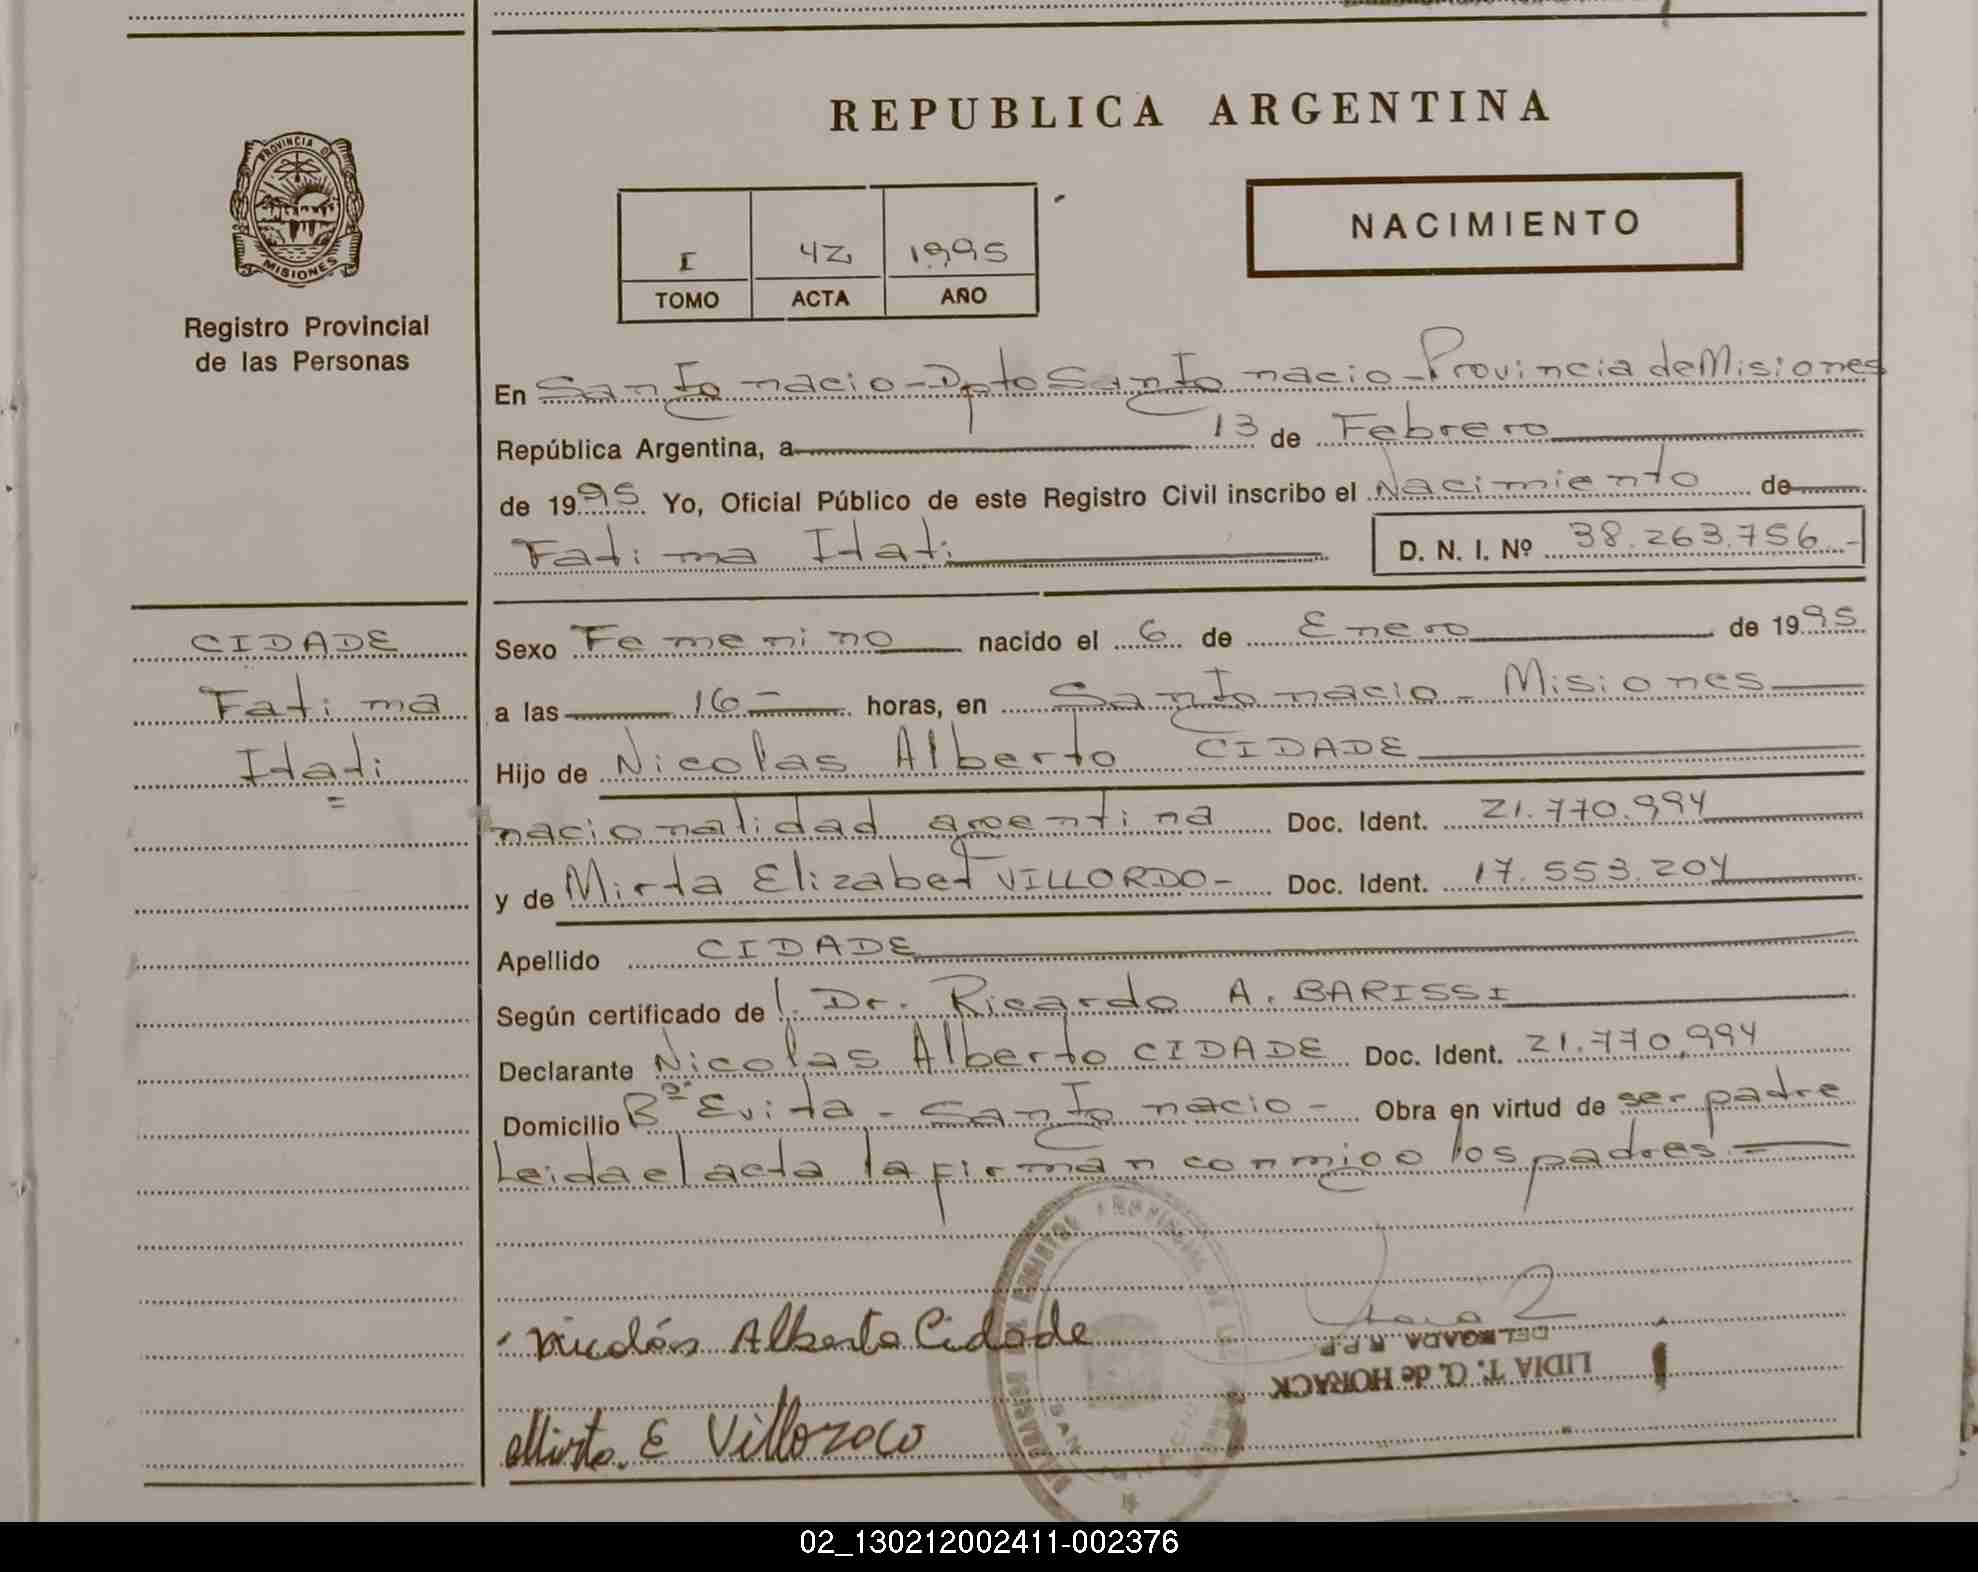 REPUBLICA ARGENTINA
PROVINCIA DE
MISIONES
Registro Provincial
de las Personas
I 42 1995
TOMO ACTA AÑO
NACIMIENTO
En San Ignacio - Dpto San Ignacio - Provincia de Misiones
República Argentina, a 13 de Febrero
de 1995 Yo, Oficial Público de este Registro Civil inscribo el Nacimiento de
Fatima Itati
D. N. I. Nº 38.263.756.-
CIDADE
Fatima
Itati
Sexo Femenino nacido el 6 de Enero de 1995
a las 16 - horas, en San Ignacio - Misiones
Hijo de Nicolas Alberto CIDADE
nacionalidad argentina Doc. Ident. 21.770.994
y de Mirta Elizabet VILLORDO - Doc. Ident. 17.553.204
Apellido CIDADE
Según certificado de Dr. Ricardo A. BARISSI
Declarante Nicolas Alberto CIDADE Doc. Ident. 21.770.994
Domicilio Bº Evita - San Ignacio - Obra en virtud de ser padre
Leida el acta la firman conmigo los padres -
Nicolás Alberto Cidade
DELEGADA R.P.P.
LIDIA T. G. de HORACK
Mirta E
02_130212002411-002376